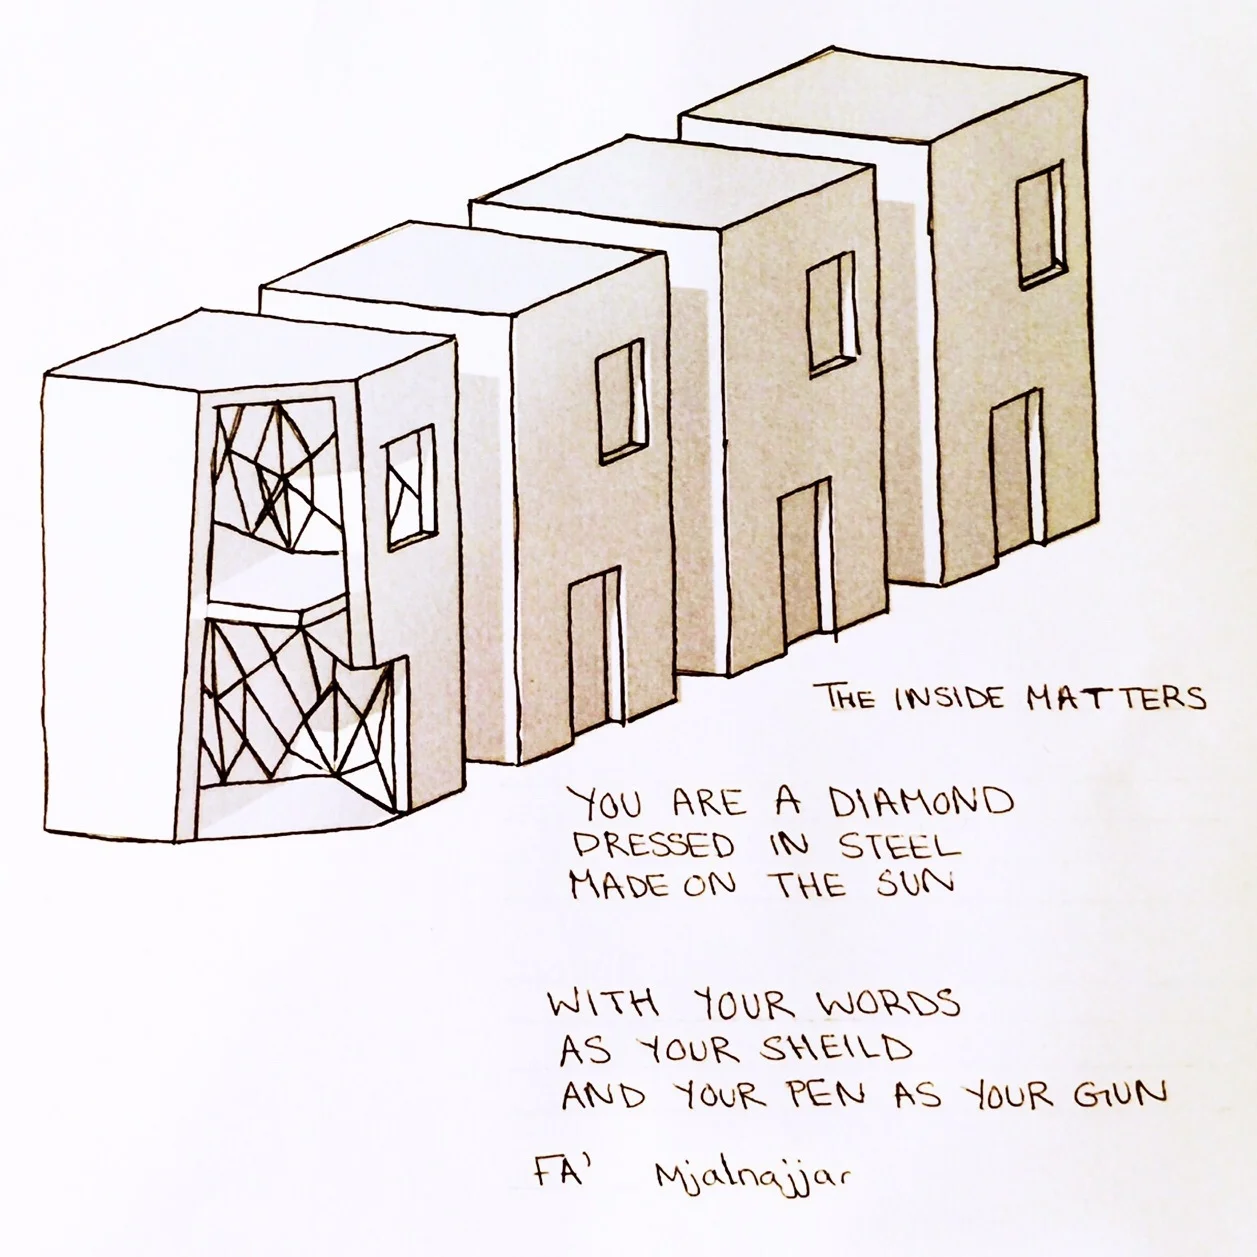 THE INSIDE MATTERS
YOU ARE A DIAMOND
DRESSED IN STEEL
MADE ON THE SUN
WITH YOUR WORDS
AS YOUR SHEILD
AND YOUR PEN AS YOUR GUN
FA' Mjalnajjar